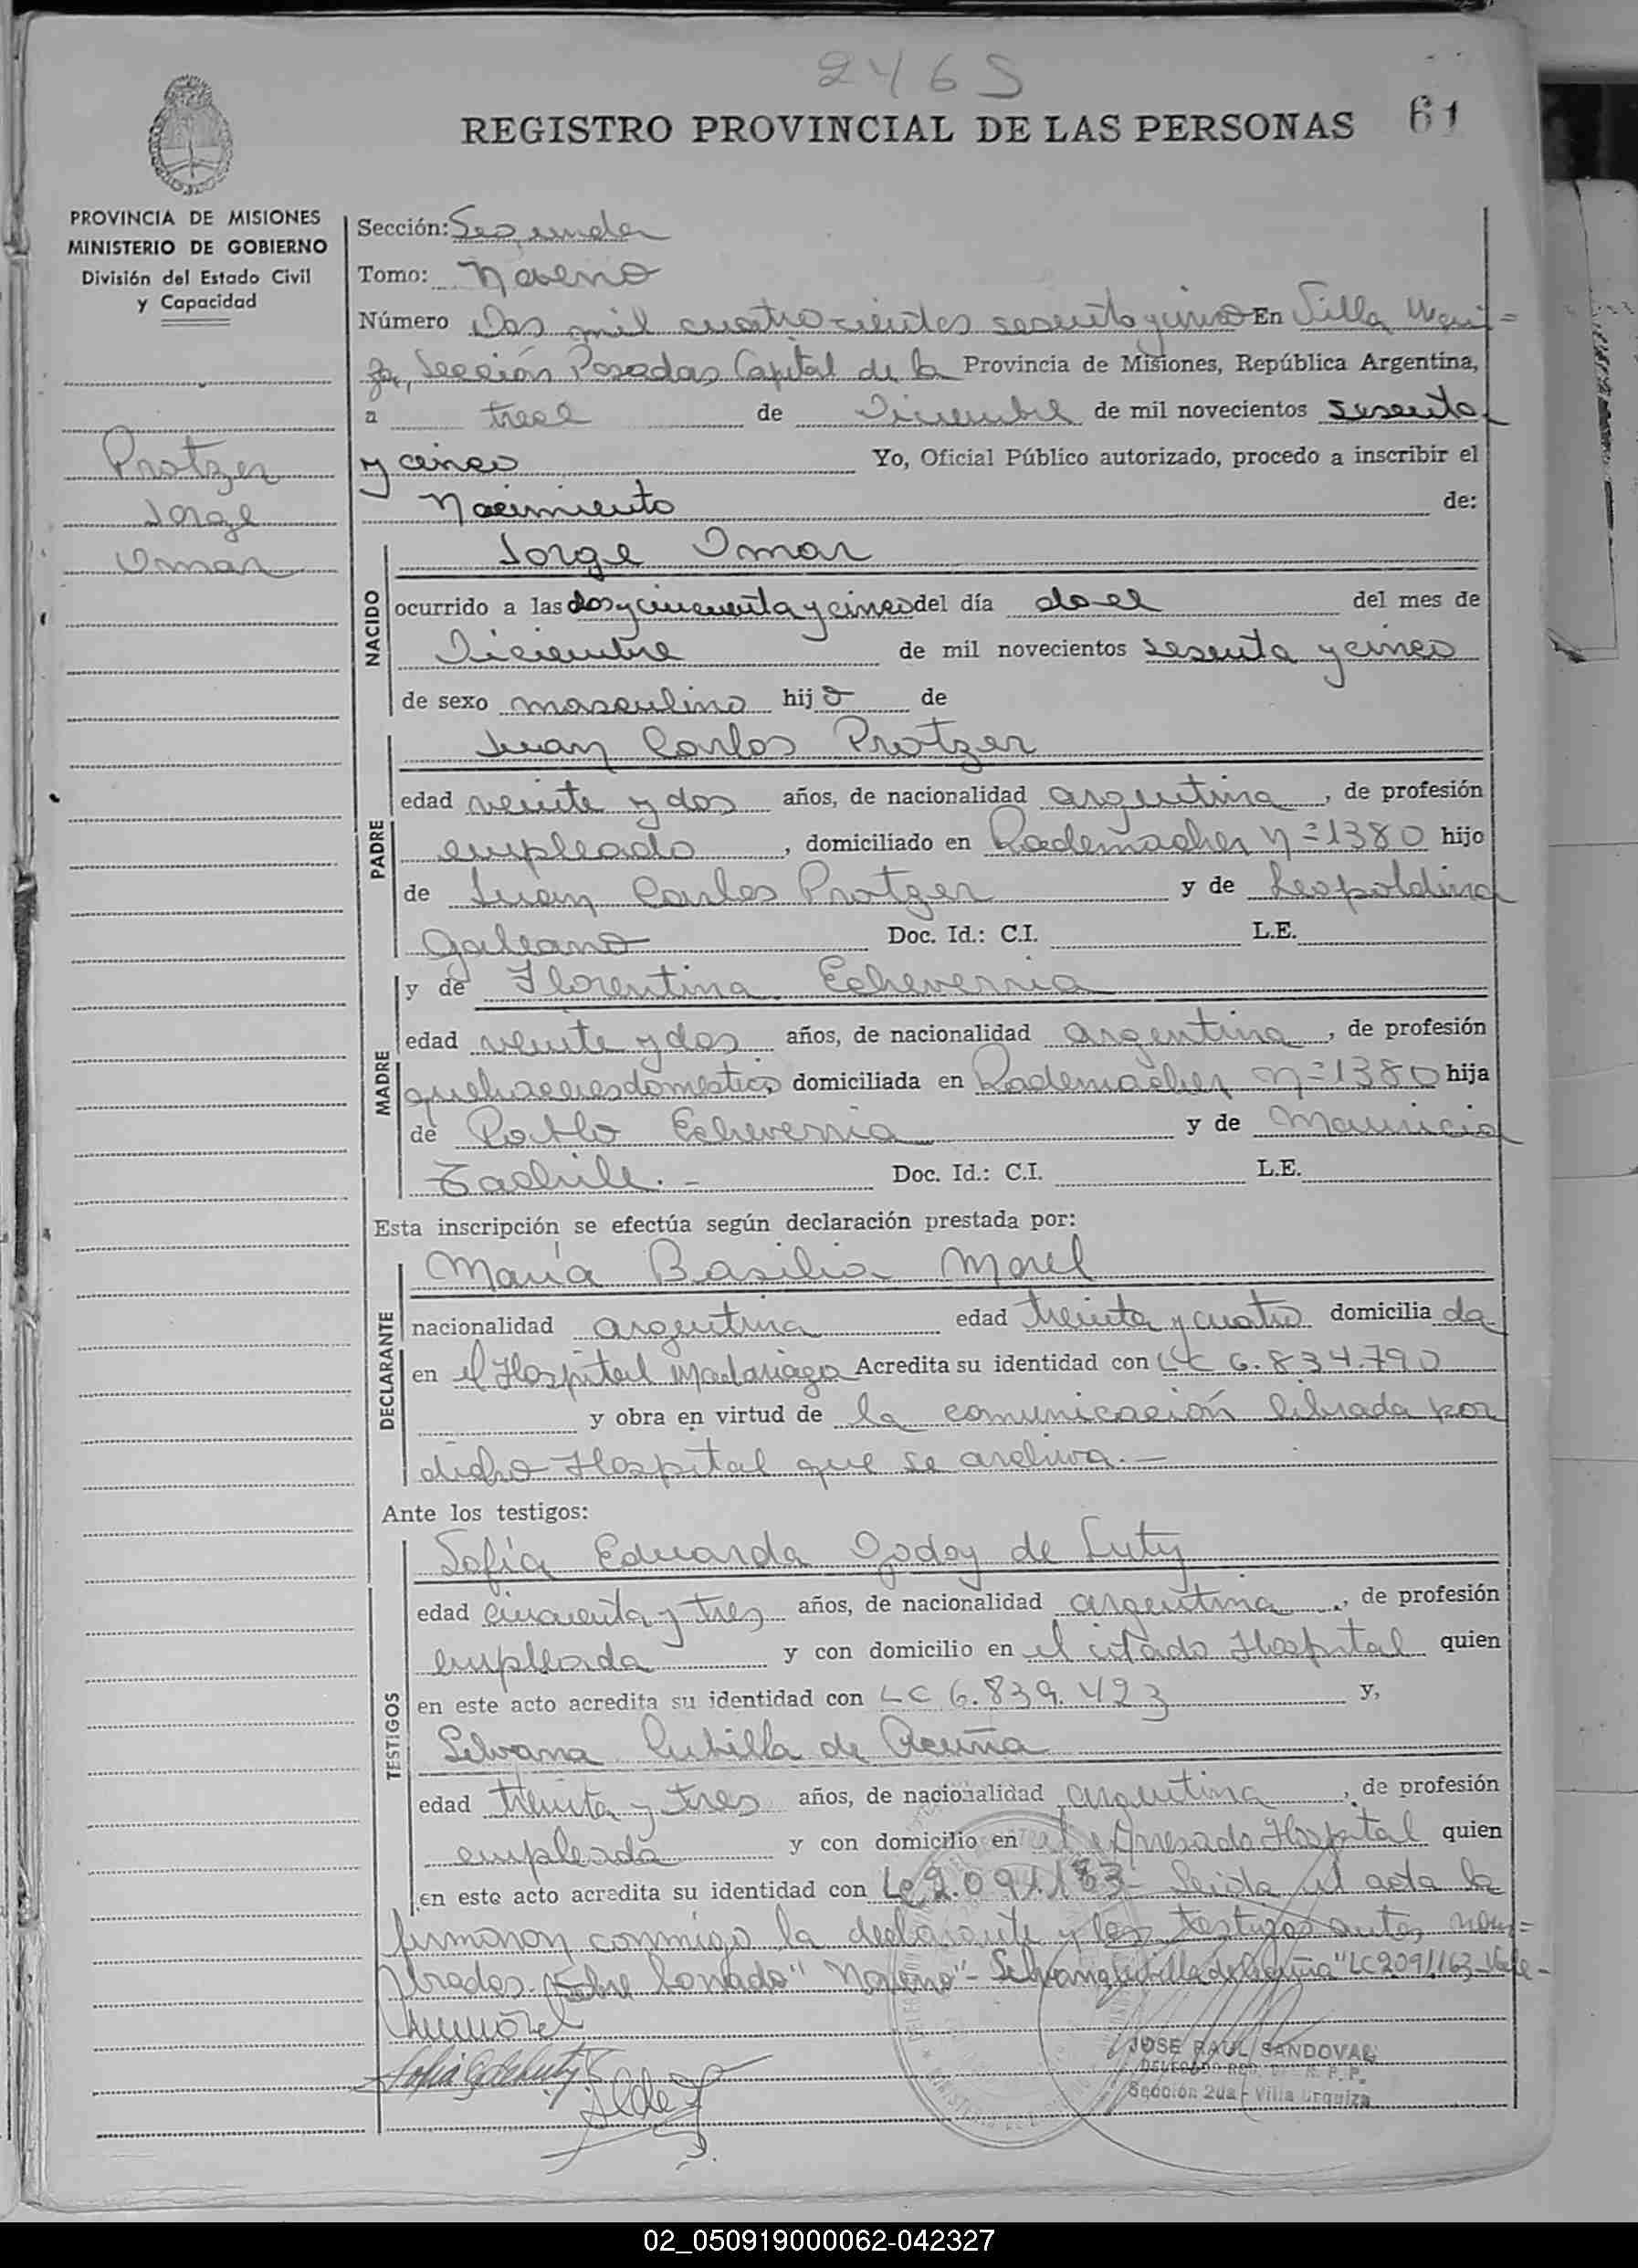 2465
REGISTRO PROVINCIAL DE LAS PERSONAS 61
PROVINCIA DE MISIONES
MINISTERIO DE GOBIERNO
División del Estado Civil
y Capacidad
Protzer
Jorge
Omar
Sección: Segunda
Tomo: Noveno
Número Dos mil cuatrocientos sesenta y cinco En Villa Urqui=
za, Sección Posadas Capital de la Provincia de Misiones, República Argentina,
a trece de Diciembre de mil novecientos sesenta
y cinco Yo, Oficial Público autorizado, procedo a inscribir el
Nacimiento de:
NACIDO
Jorge Omar
ocurrido a las dos y cincuenta y cinco del día doce del mes de
Diciembre de mil novecientos sesenta y cinco
de sexo masculino hijo de
PADRE
Juan Carlos Protzer
edad veinte y dos años, de nacionalidad argentina, de profesión
empleado, domiciliado en Rademacher Nº 1380 hijo
de Juan Carlos Protzer y de Leopoldina
Galeano Doc. Id.: C.I. L.E.
MADRE
y de Florentina Echeverria
edad veinte y dos años, de nacionalidad argentina, de profesión
quehaceres domesticos domiciliada en Rademacher Nº 1380 hija
de Pablo Echeverria y de Mauricia
Doc. Id.: C.I. L.E.
Esta inscripción se efectúa según declaración prestada por:
DECLARANTE
María Basilia Morel
nacionalidad argentina edad treinta y cuatro domiciliada
en el Hospital Madariaga Acredita su identidad con LC 6.834.790
y obra en virtud de la comunicación librada por
dicho Hospital que se archiva.—
Ante los testigos:
TESTIGOS
Sofía Eduarda Godoy de Luty
edad cincuenta y tres años, de nacionalidad argentina, de profesión
empleada y con domicilio en el citado Hospital quien
en este acto acredita su identidad con LC 6.839.423 y,
Selvana Cubilla de Acuña
edad treinta y tres años, de nacionalidad argentina, de profesión
empleada y con domicilio en el expresado Hospital quien
en este acto acredita su identidad con LC 2.091.163– Leida el acta la
firmaron conmigo la declarante y los testigos antes nom=
brados. Sobre borrado "Noveno"– Selvana Cubilla de Acuña "LC 2091163– Vale–
JOSE RAUL SANDOVAL
Sección 2da – Villa Urquiza
02_050919000062-042327